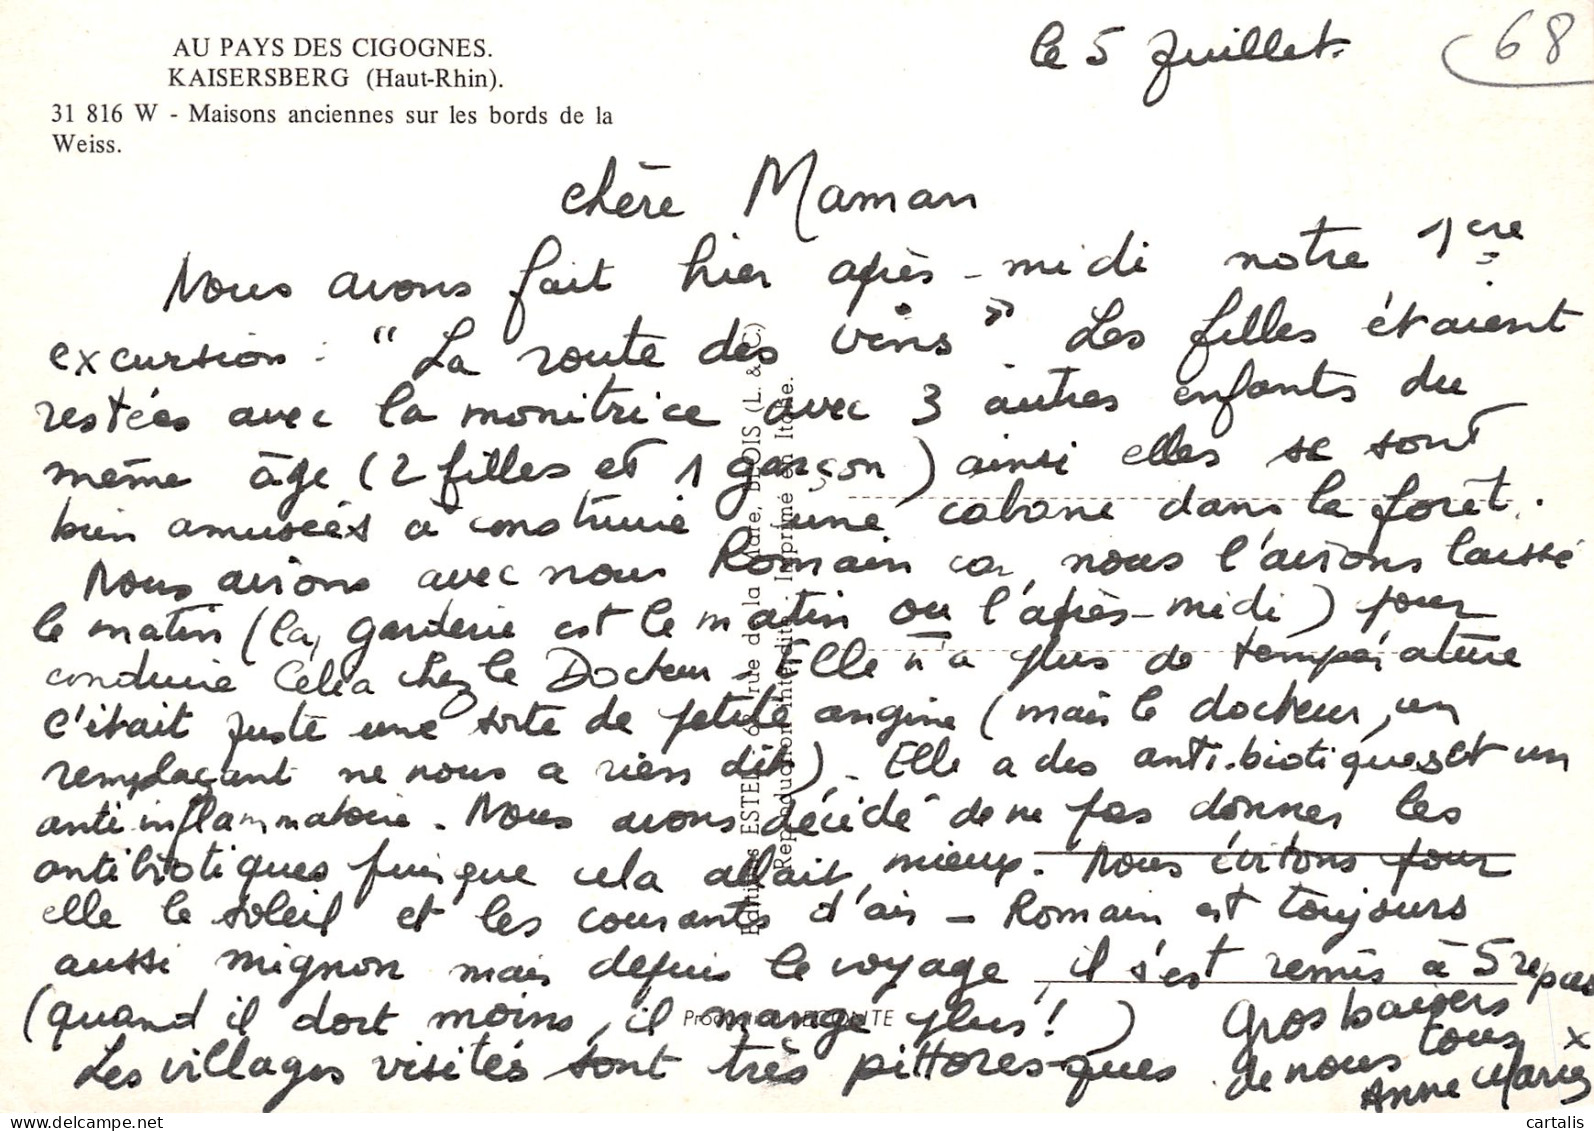 AU PAYS DES CIGOGNES.
KAISERSBERG (Haut-Rhin).
31 816 W - Maisons anciennes sur les bords de la
Weiss.
le 5 Juillet.
68
Chère Maman
Nous avons fait hier après-midi notre 1ère
excursion : "La route des vins" Les filles étaient
restées avec la monitrice avec 3 autres enfants du
même âge (2 filles et 1 garçon) ainsi elles se sont
bien amusées à construire une cabane dans la forêt.
Nous avions avec nous Romain car nous l'avions laissé
le matin (la garderie est le matin ou l'après-midi) pour
conduire Célia chez le Docteur - Elle n'a plus de température
c'était juste une sorte de petite angine (mais le docteur, un
remplaçant ne nous a rien dit) - Elle a des antibiotiques et un
anti inflammatoire. Nous avons décidé de ne pas donner les
antibiotiques puisque cela allait mieux. Nous évitons pour
elle le soleil et les courants d'air - Romain est toujours
aussi mignon mais depuis le voyage, il s'est remis à 5 repas
(quand il dort moins, il mange plus!)
Les villages visités sont très pittoresques.
Gros baisers
de nous tous x
Anne Marie
Editions ESTEL, 6, rue de la Mare, BLOIS (L. & C.)
Reproduction interdite. Imprimé en Italie.
Production LECONTE
cartalis